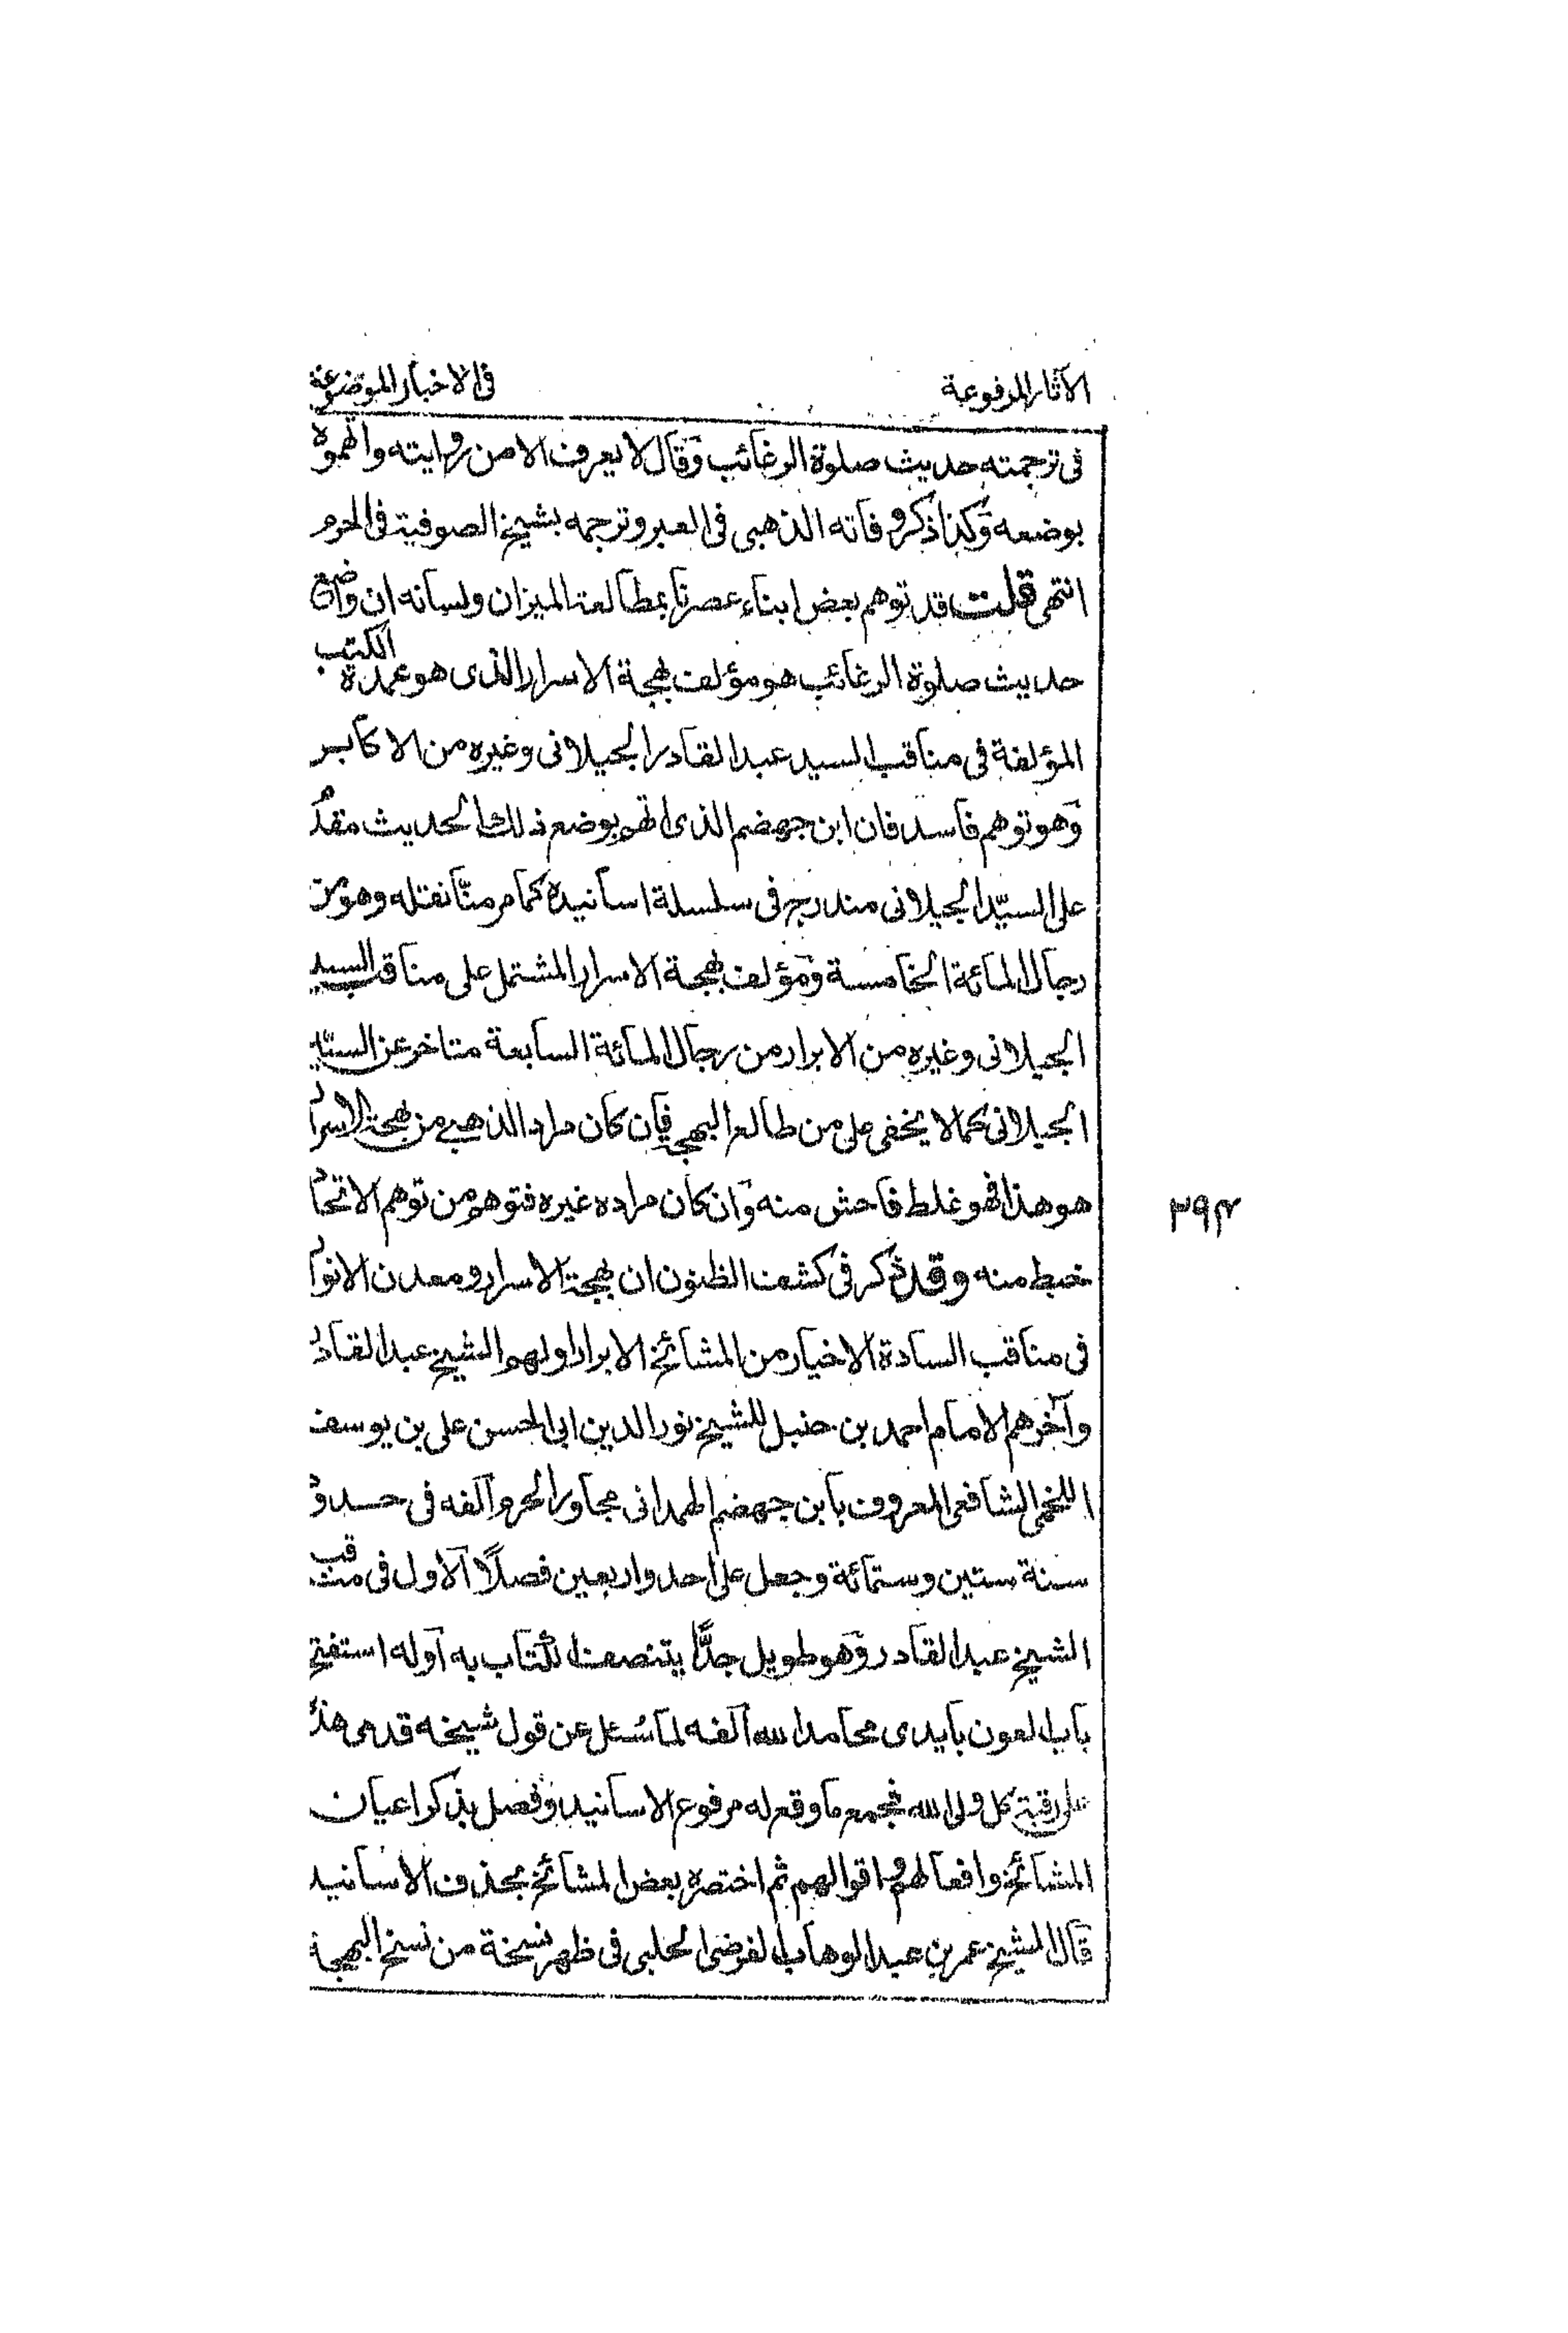 الآثار المرفوعة
فى الاخبار الموضوعة
فى ترجمته حديث صلوة الرغائب وقال لا يعرف الا من روايته واتهموه
بوضعه وكذا ذكر وفاته الذهبى فى العبر وترجمه بشيخ الصوفية فى الحرم
انتهى قلت قد توهم بعض ابناء عصرنا بمطالعة الميزان ولسانه ان واضع
حديث صلوة الرغائب هو مؤلف بهجة الاسرار الذى هو عمدة الكتب
المؤلفة فى مناقب السيد عبد القادر الجيلانى وغيره من الاكابر
وهو توهم فاسد فان ابن جهضم الذى اتهم بوضع ذلك الحديث مقدم
على السيّد الجيلانى مندرج فى سلسلة اسانيده كما مر منّا نقله وهو من
رجال المائة الخامسة ومؤلف بهجة الاسرار المشتمل على مناقب السيد
الجيلانى وغيره من الابرار من رجال المائة السابعة متاخر عن السيّد
الجيلانى كما لا يخفى على من طالع البهجة فان كان مراد الذهبى من بهجة الاسرار
هو هذا فهو غلط فاحش منه وان كان مراده غيره فتوهم من توهم الاتحاد
خبط منه وقد ذكر فى كشف الظنون ان بهجة الاسرار ومعدن الانوار
فى مناقب السادة الاخيار من المشائخ الابرار اولهم الشيخ عبد القادر
وآخرهم الامام احمد بن حنبل للشيخ نور الدين ابى الحسن على بن يوسف
اللخمى الشافعى المعروف بابن جهضم الهمدانى مجاور الحرم ألفه فى حدود
سنة ستين وستمائة وجعل على احد واربعين فصلًا الاول فى مناقب
الشيخ عبد القادر وهو طويل جدًّا يتنصف الكتاب به أوله استفتح
باب العون بايدى محامد الله ألفه لما سُئل عن قول شيخه قدمى هذه
على رقبة كل ولى الله فجمع ما وقع له مرفوع الاسانيد وفصل بذكر اعيان
المشائخ وافعالهم واقوالهم ثم اختصره بعض المشائخ بحذف الاسانيد
قال الشيخ عمر بن عبد الوهاب الفرضى الحلبى فى ظهر نسخة من نسخ البهجة